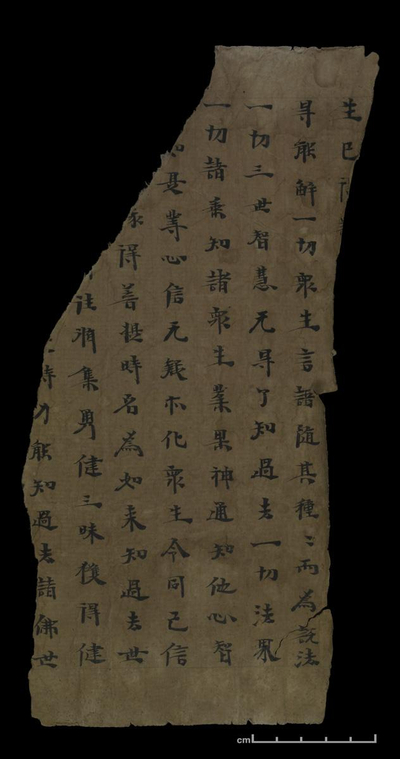 生已
㝵能解一切衆生言語随其種〻而為説法
一切三世智慧无㝵了知過去一切法界
一切諸乘知諸衆生業果神通知他心智
如是等心信无疑亦化衆生令同己信
得善提時名為如来知過去世
往將集勇健三昧獲得健
時乃能知過去諸佛世
cm